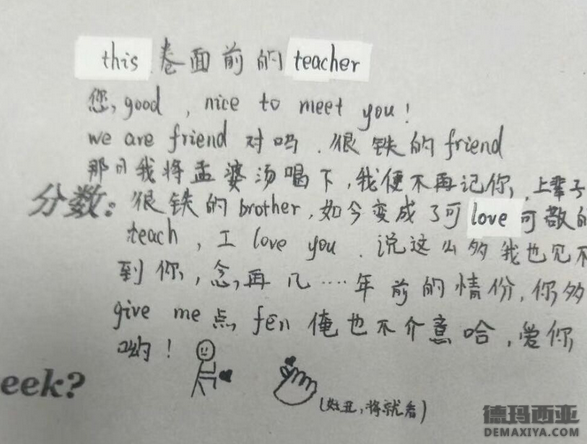 this 卷面前的 teacher
您,good , nice to meet you!
we are friend 对吗.很铁的 friend
那日我将孟婆汤喝下,我便不再记你,上辈子
分数: 很铁的 brother,如今变成了可love可敬的
teach , I love you .说这么多我也见不
到你,念,再几……年前的情份,你多
give me 点 fēn 俺也不介意哈,爱你
哟!
eek? (灶丑,将就看)
德玛西亚
DEMAXIYA.COM